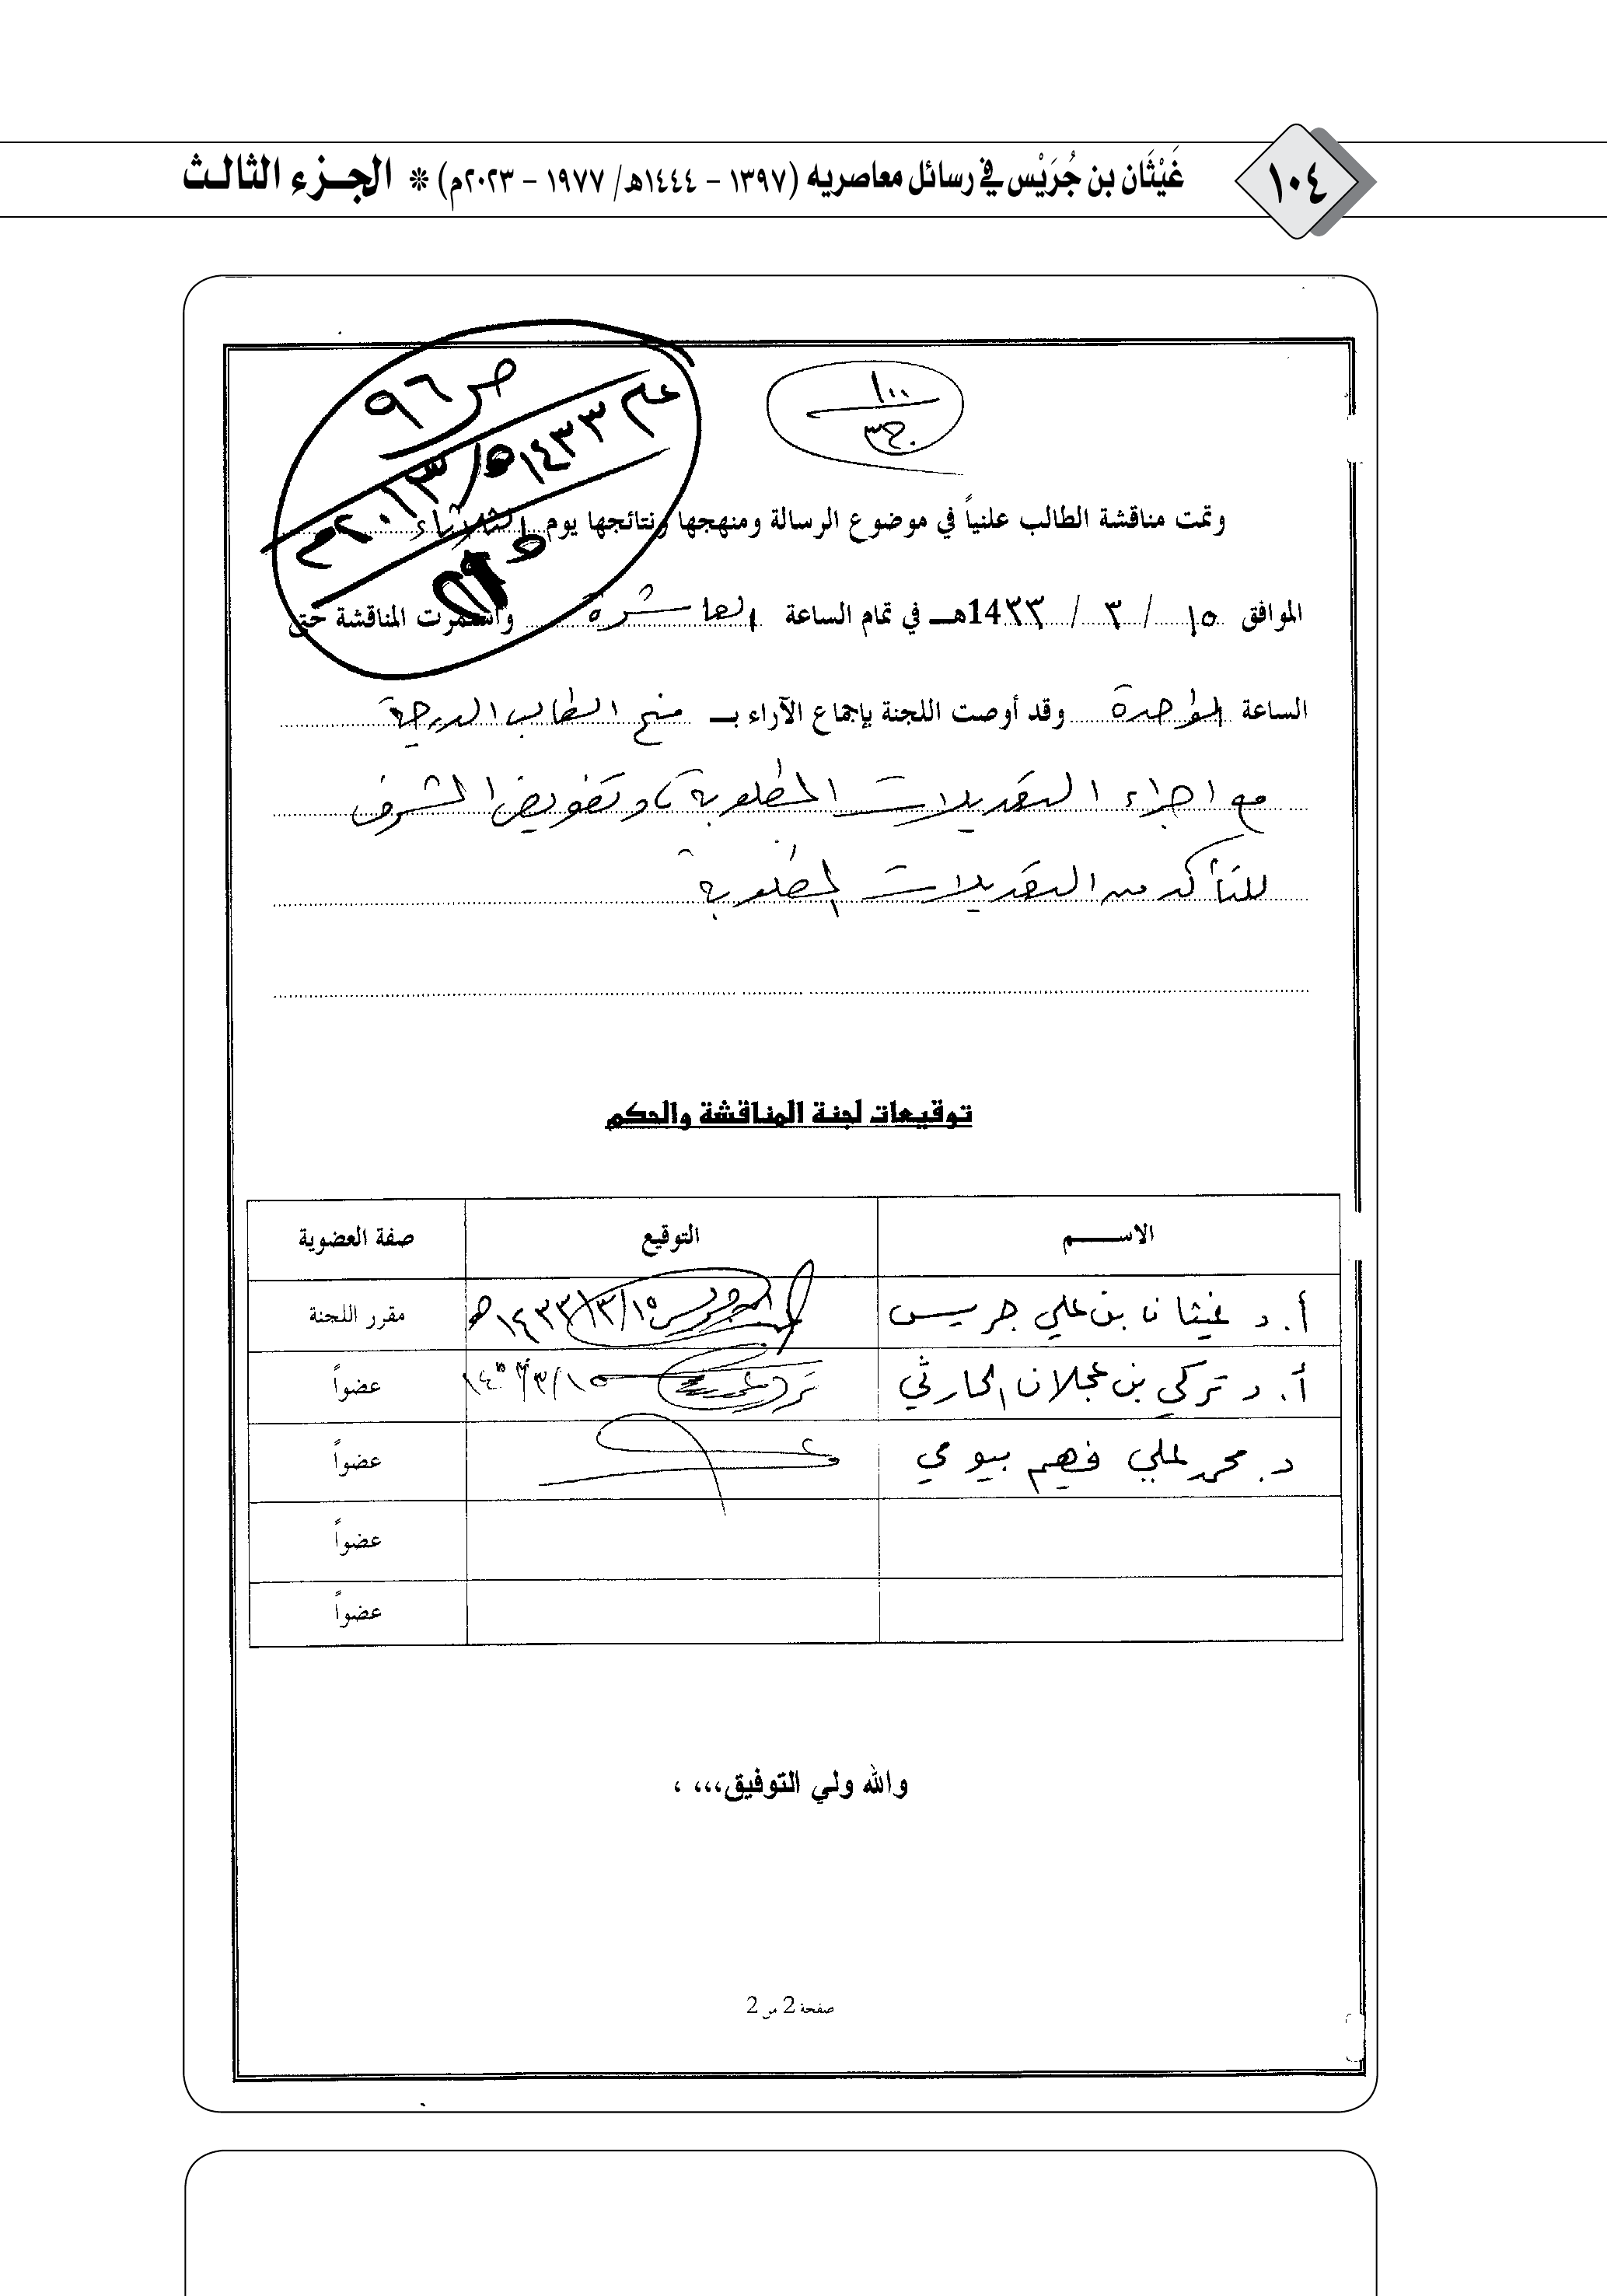 ١٠٤
غَيْثَان بن جُرَيْس في رسائل معاصريه (١٣٩٧ - ١٤٤٤هـ/ ١٩٧٧ - ٢٠٢٣م) * الجـزء الثالث
ص ٩٦
عام ١٤٣٣هـ/٢٠١٣م
١٠٠
وتمت مناقشة الطالب علنياً في موضوع الرسالة ومنهجها ونتائجها يوم
الموافق ١٥ / ٣ / 14٣٣هـ في تمام الساعة العاشرة واستمرت المناقشة حتى
الساعة الواحدة وقد أوصت اللجنة بإجماع الآراء بـ منح الطالب الدرجة
مع اجراء التعديلات المطلوبة وتفويض المشرف
للتأكد من التعديلات المطلوبة
توقيعات لجنة المناقشة والحكم
الاســـم التوقيع صفة العضوية
أ. د غيثان بن علي جريس ١٤٣٣/٣/١٥هـ مقرر اللجنة
أ. د تركي بن عجلان الحارثي عضواً
د. محمد علي فهيم بيومي عضواً
عضواً
عضواً
والله ولي التوفيق،،، ،
صفحة 2 من 2